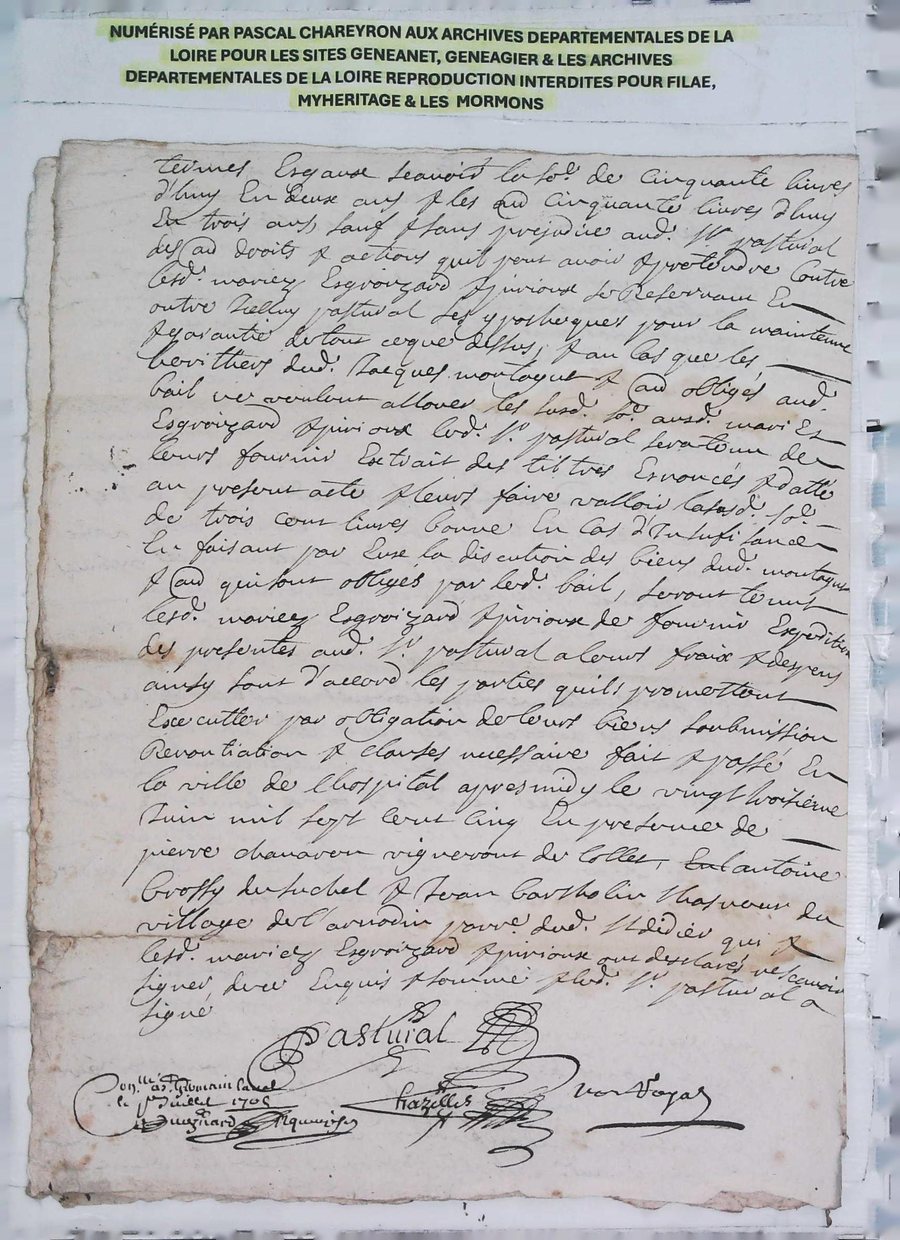 NUMÉRISÉ PAR PASCAL CHAREYRON AUX ARCHIVES DEPARTEMENTALES DE LA
LOIRE POUR LES SITES GENEANET, GENEAGIER & LES ARCHIVES
DEPARTEMENTALES DE LA LOIRE REPRODUCTION INTERDITES POUR FILAE,
MYHERITAGE & LES MORMONS
termes Esgaux scavoir la so.e de Cinquante livres
d'huy En deux ans & les Cinquante livres d'huy
En trois ans, sauf & sans prejudice aud. Sr pastural
des droits & actions quil peut avoir & pretendre Contre
lesd. mariez Esgroizard & jurioux se Reservant En
outre Icelluy pastural ses ypotheques pour la maintenue
& garantie de tout ceque dessus, & au Cas que les
heritiers dud. Jacques montagut & obligés aud.
bail ne veulent allouer les susd. so.e ausd. mariEz
Esgroizard & jurioux led. Sr pastural sera tenu de
leurs fournir Extrait des tiltres Esnoncés & datté
au present acte & leurs faire valloir lasusd. so.e
de trois cent livres bonne En Cas d'Insufisance
En faisant par Eux la discution des biens dud. montagut
& qui sont obligés par led. bail, seront tenus
lesd. mariez Esgroizard & jurioux de fournir Expedition
des presentes aud. Sr pastural a leurs fraix & despens
ainsy sont d'accord les parties quils promettent
Executter par obligation de leurs biens soubmission
Renontiation & clauses necessaire fait & passé En
la ville de Lhospital apres midy le vingt troisieme
Juin mil sept cent Cinq En presence de
pierre chanavon vigneront de Collet, antoine
brossy du suchel & Jean bartholin du
village de l'arnodin parre dud. St didier qui &
lesd. mariez Esgroizard & jurioux ont desclarés ne scavoir
signer, de ce Enquis & sommé & led. Sr pastural a
signé
Pastural
Con.lle a St Germain Laval
le pr Juillet 1705
Chazelles